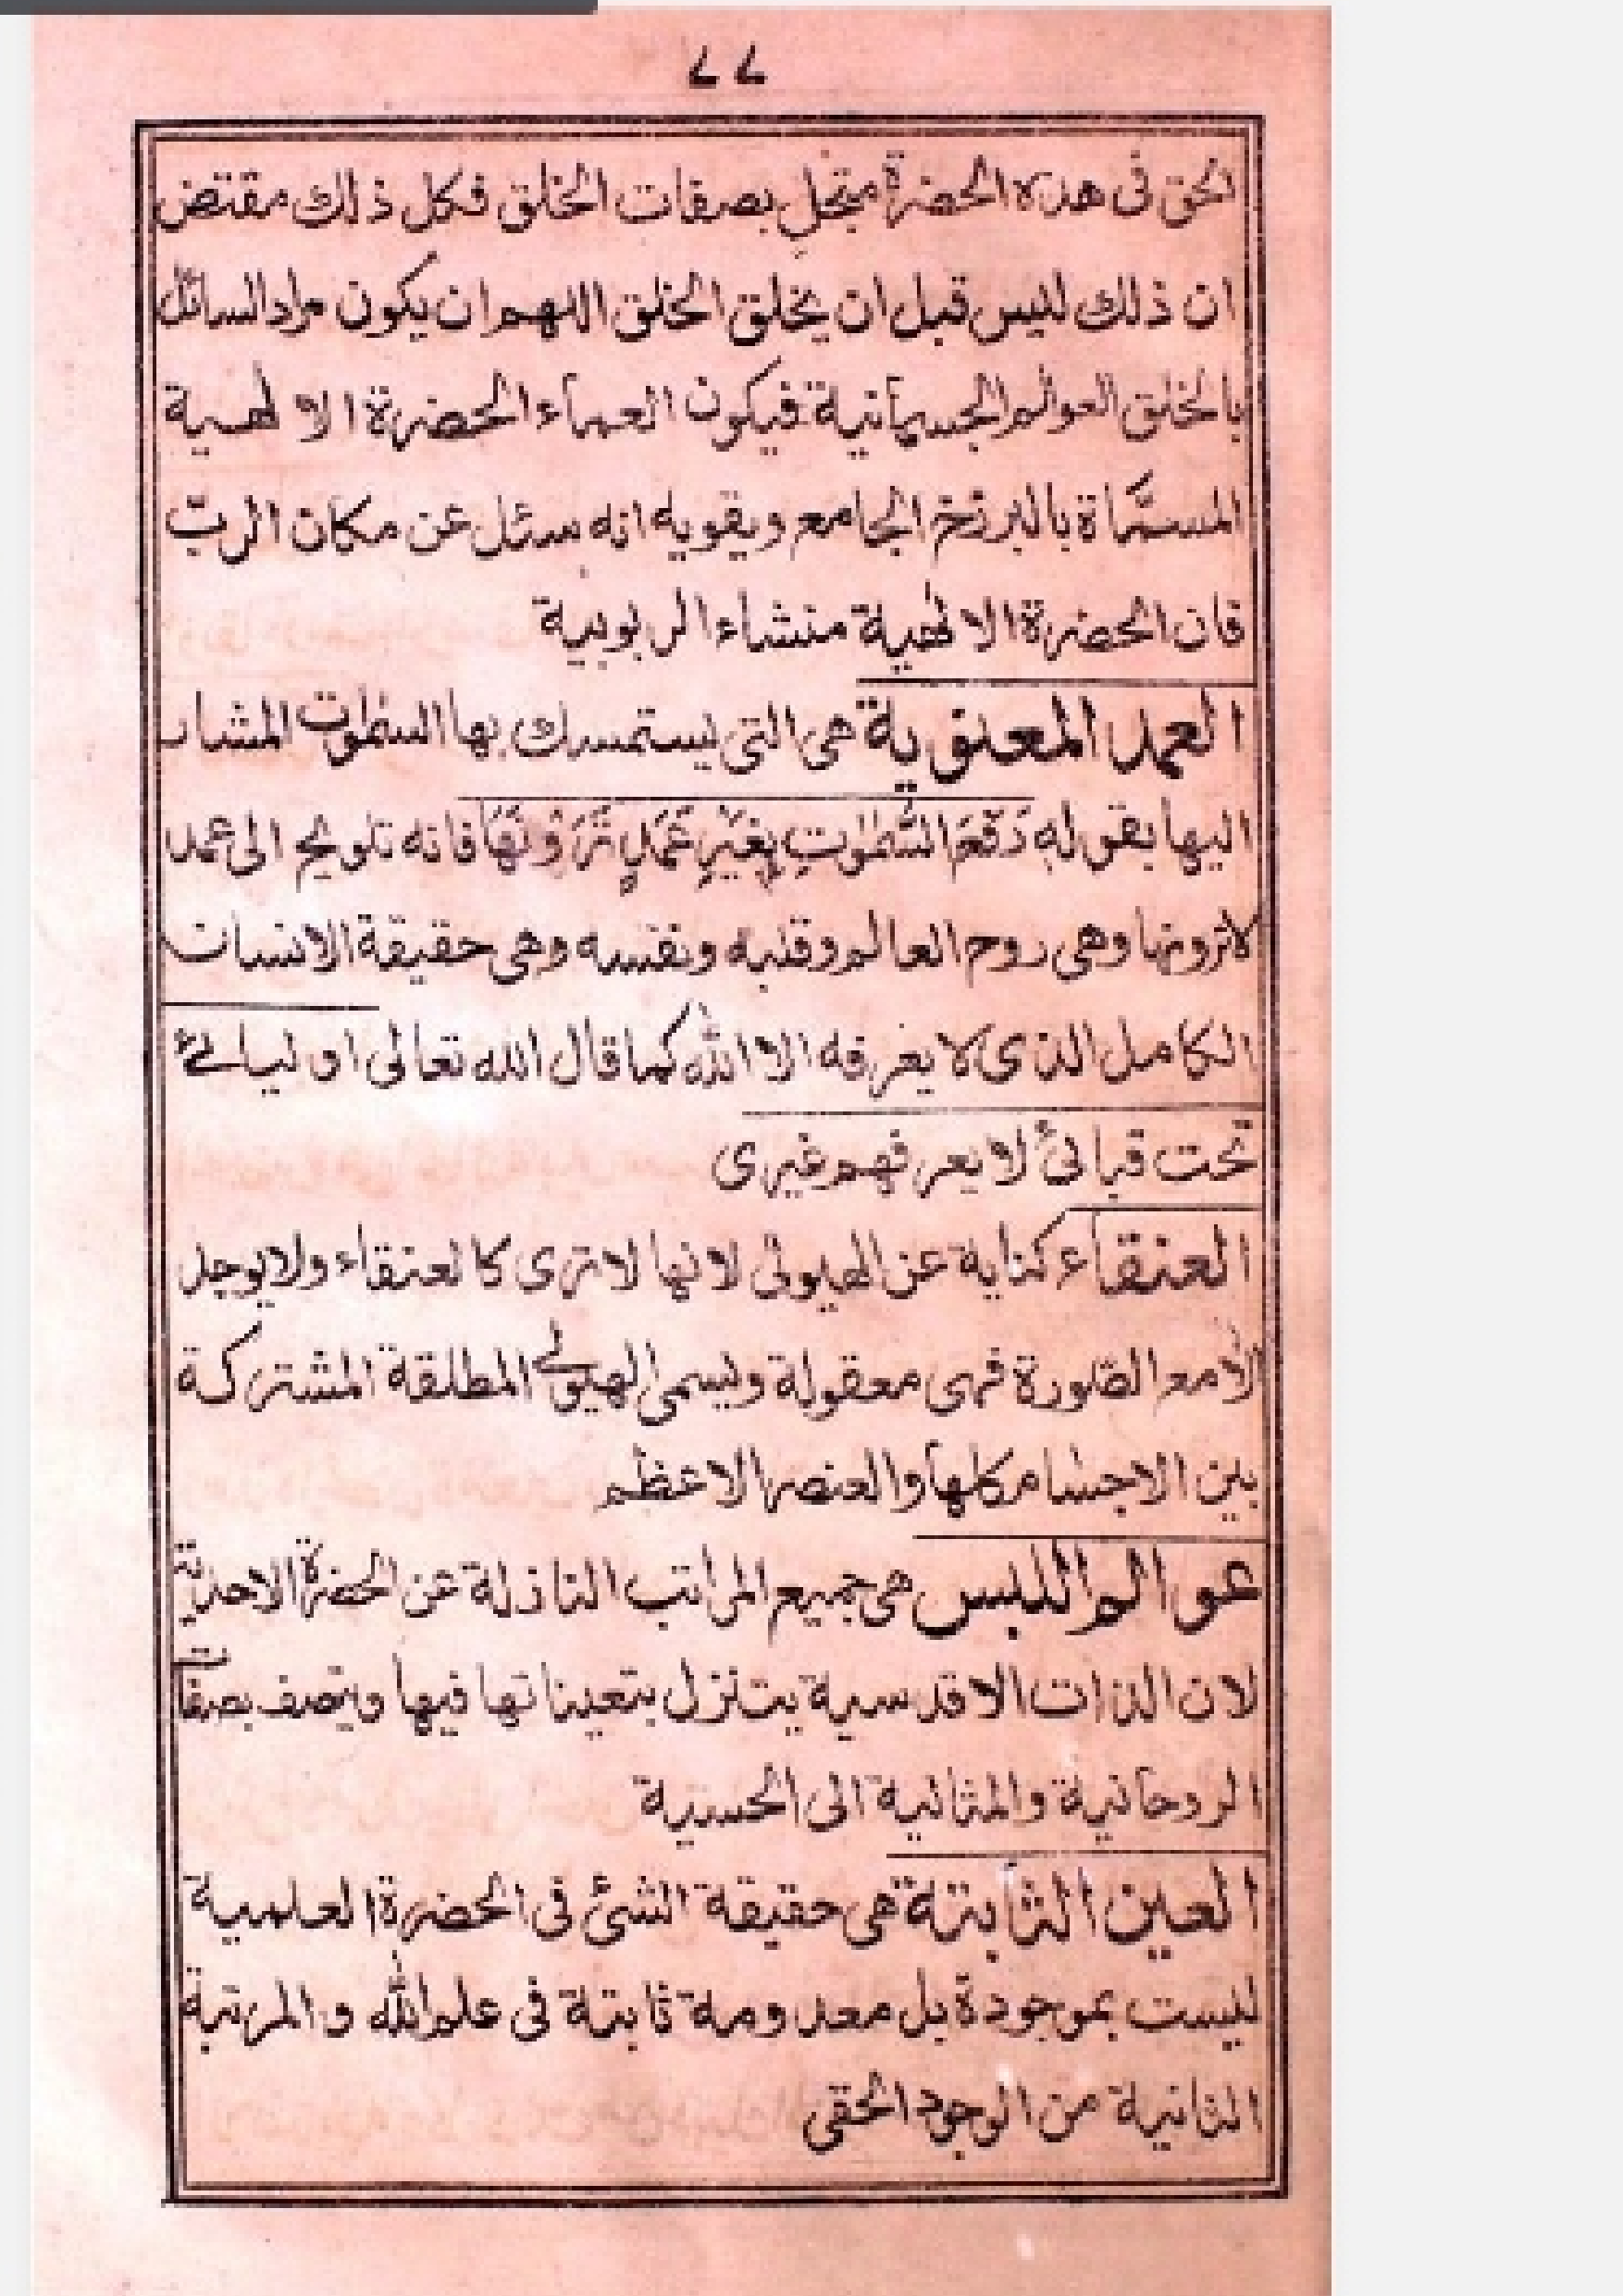 ٧٧
الحق فى هذه الحضرة متجلٍ بصفات الخلق فكل ذلك مقتض
ان ذلك ليس قبل ان يخلق الخلق اللهم ان يكون مراد السائل
بالخلق العوالم الجسمانية فيكون العماء الحضرة الالٰهية
المسمَّاة بالبرزخ الجامع ويقويه انه سئل عن مكان الربّ
فان الحضرة الالٰهية منشاء الربوبية
العمد المعنوية هى التى يستمسك بها السمٰوٰت المشار
اليها بقوله رَفَعَ السَّمٰوٰتِ بِغَيْرِ عَمَدٍ تَرَوْنَهَا فانه تلويح الى عمد
لا ترونها وهى روح العالم وقلبه ونفسه وهى حقيقة الانسان
الكامل الذى لا يعرفه الا الله كما قال الله تعالى اوليائے
تحت قبائى لا يعرفهم غيرى
العنقاء كناية عن الهيولى لانها لا ترى كالعنقاء ولا يوجد
الّا مع الصّورة فهى معقولة ويسمى الهيولے المطلقة المشتركة
بين الاجسام كلها والعنصر الاعظم
عوالم اللبس هى جميع المراتب النازلة عن الحضرة الاحديّة
لان الذات الاقدسية يتنزل بتعيناتها فيها ويتصف بصفات
الروحانية والمثالية الى الحسية
العين الثابتة هى حقيقة الشئ فى الحضرة العلمية
ليست بموجودة بل معدومة ثابتة فى علم الله والمرتبة
الثانية من الوجود الحقى